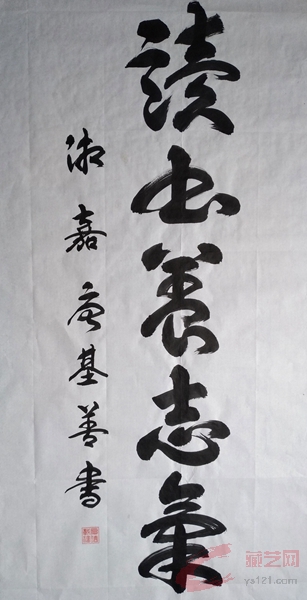 讀书養志氣
湘嘉唐基善書
藏艺网
ys121.com